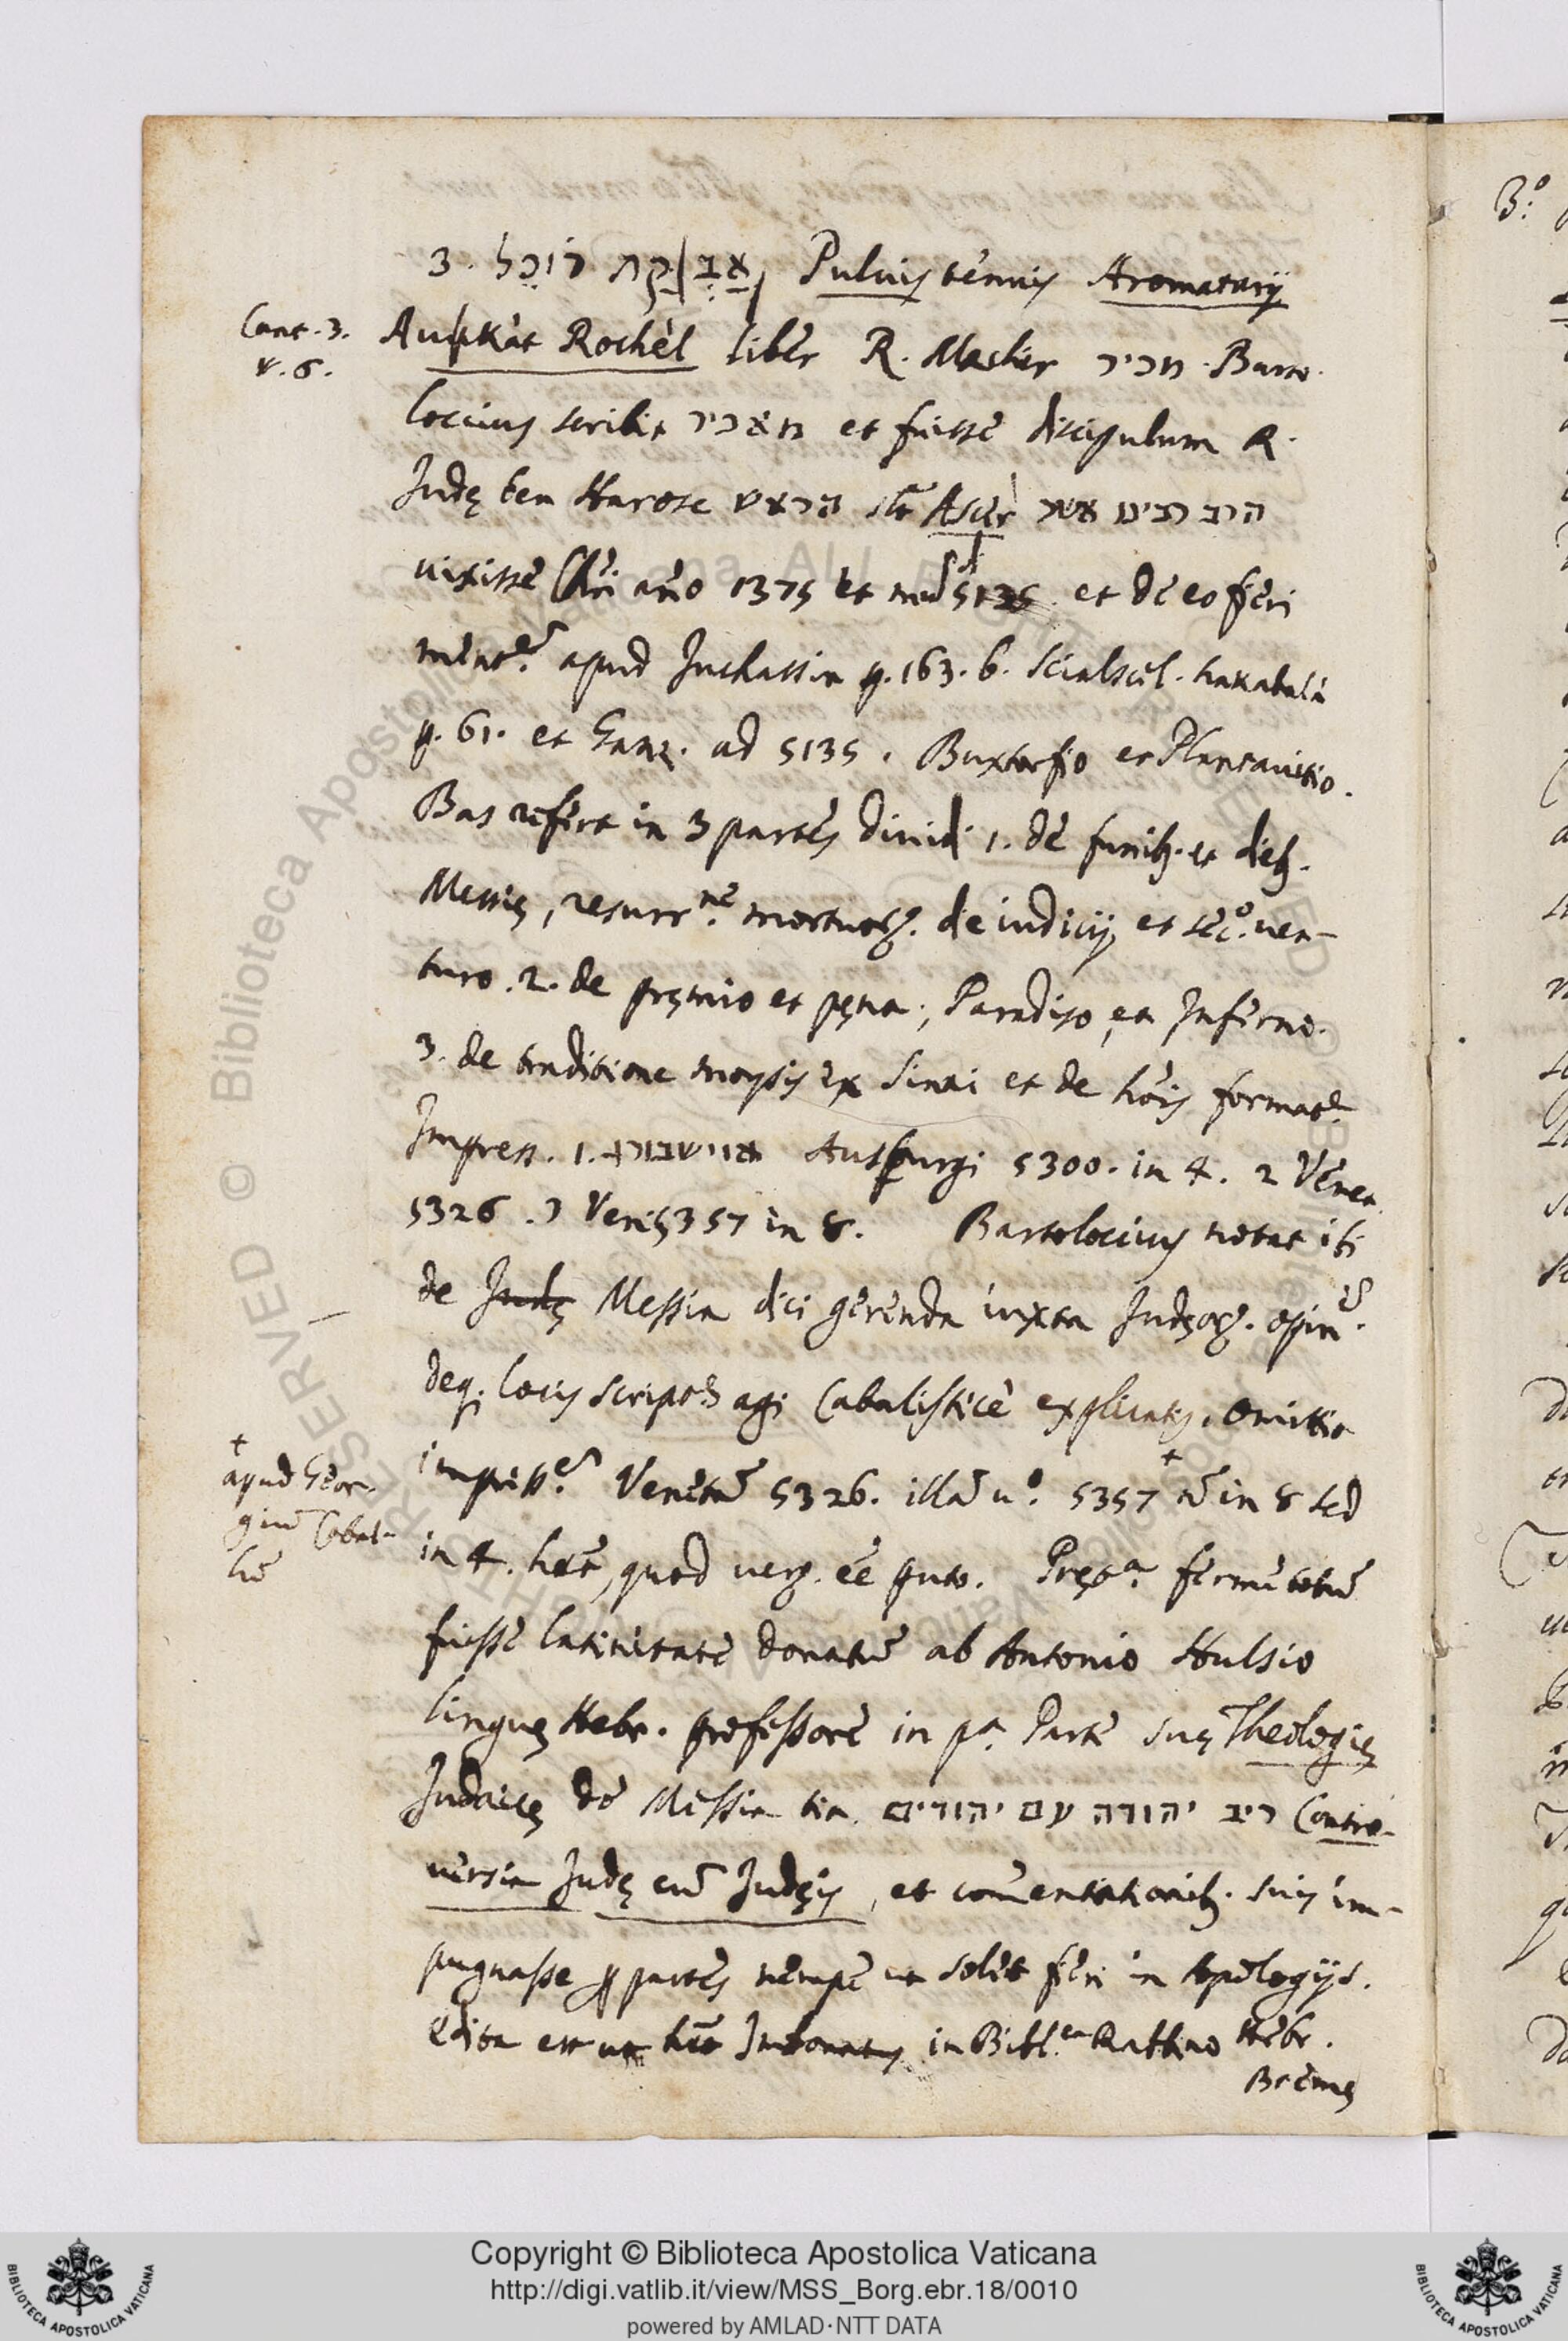 3. אבקת רוכל Pulvis tenuis Aromatarij
Cant. 3.
v. 6.
Aukàt Rochèl liber R. Machir מכיר. Barto-
loccius scribit מאכיר et fuisse discipulum R.
Judę ben Harosc הראש Ascèr הרב רבינו אשר
vixisse Chri año 1375 et md̃ 5135 et de eo fieri
ment.em apud Juchassin p. 163. b. Scialscel. hakabalà
p. 61. et Ganz. ad 5135. Buxtorfio et Plantavitio.
Bas refert in 3 partes dividi 1. de funib. et dieb.
Messię, resurr.ne mortuoȝ. die iudicij et sęc.o ven-
turo. 2. de pręmio et pęna, Paradiso, et Inferno.
3. de traditione moysis ex Sinai et de hõis format.e
Impress. 1. אוישבורג Auspurgi 5300. in 4. 2 Venet.
5326. 3 Ven. 5357 in 8. Bartoloccius notat ibi
de Judę Messia dici gerenda iuxta Judęoȝ. opin.
deq; locis script. agi Cabalisticè explicatis, omittit
impress.em Venetã 5326. illã v.o 5357 + nõ in 8 sed
+
apud Geor-
giũ Cabal-
lũ
in 4. hẽt, quod verȝ. ẽe puto. Pręt.a fermè totũ
fuisse latinitate donatũ ab Antonio Hulsio
linguę Hebr. professore in p.a Parte suę Theologię
Judaicę de Messia tta. ריב יהודה עם יהודים Contro-
versia Judę cũ Judęis, et com̃entationib. suis im-
pugnasse p partes nempe ut solet fieri in Apologijs.
edita est ut hẽt Imbonatus in Bibl.ca Rabbino Hebr.
Bremę
Copyright © Biblioteca Apostolica Vaticana
http://digi.vatlib.it/view/MSS_Borg.ebr.18/0010
powered by AMLAD·NTT DATA